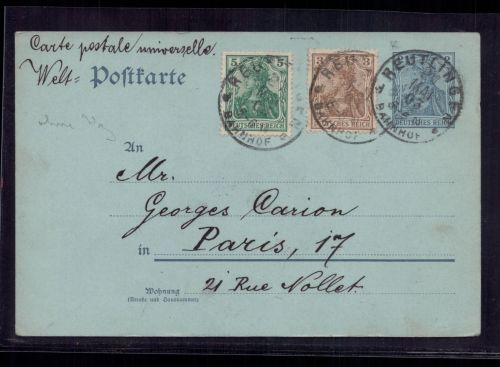 Carte postale universelle.
Welt= Postkarte
5 3 2
DEUTSCHES REICH DEUTSCHES REICH DEUTSCHES REICH
REUTLINGEN
BAHNHOF BAHNHOF BAHNHOF
An
Mr.
Georges Carion
in Paris, 17
21 Rue Nollet.
Wohnung
(Straße und Hausnummer)